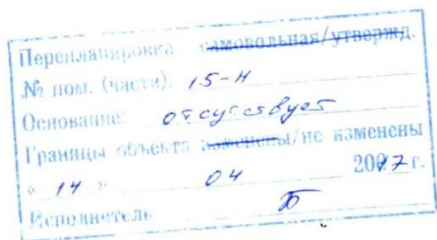 Перепланировка самовольная/утвержд.
№ пом. (части): 15-Н
Основание: отсутствует
Границы объекта изменены/не изменены
« 14 » 04 2017 г.
Исполнитель